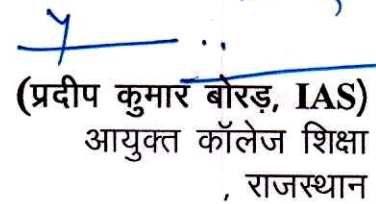 (प्रदीप कुमार बोरड़, IAS)
आयुक्त कॉलेज शिक्षा
, राजस्थान